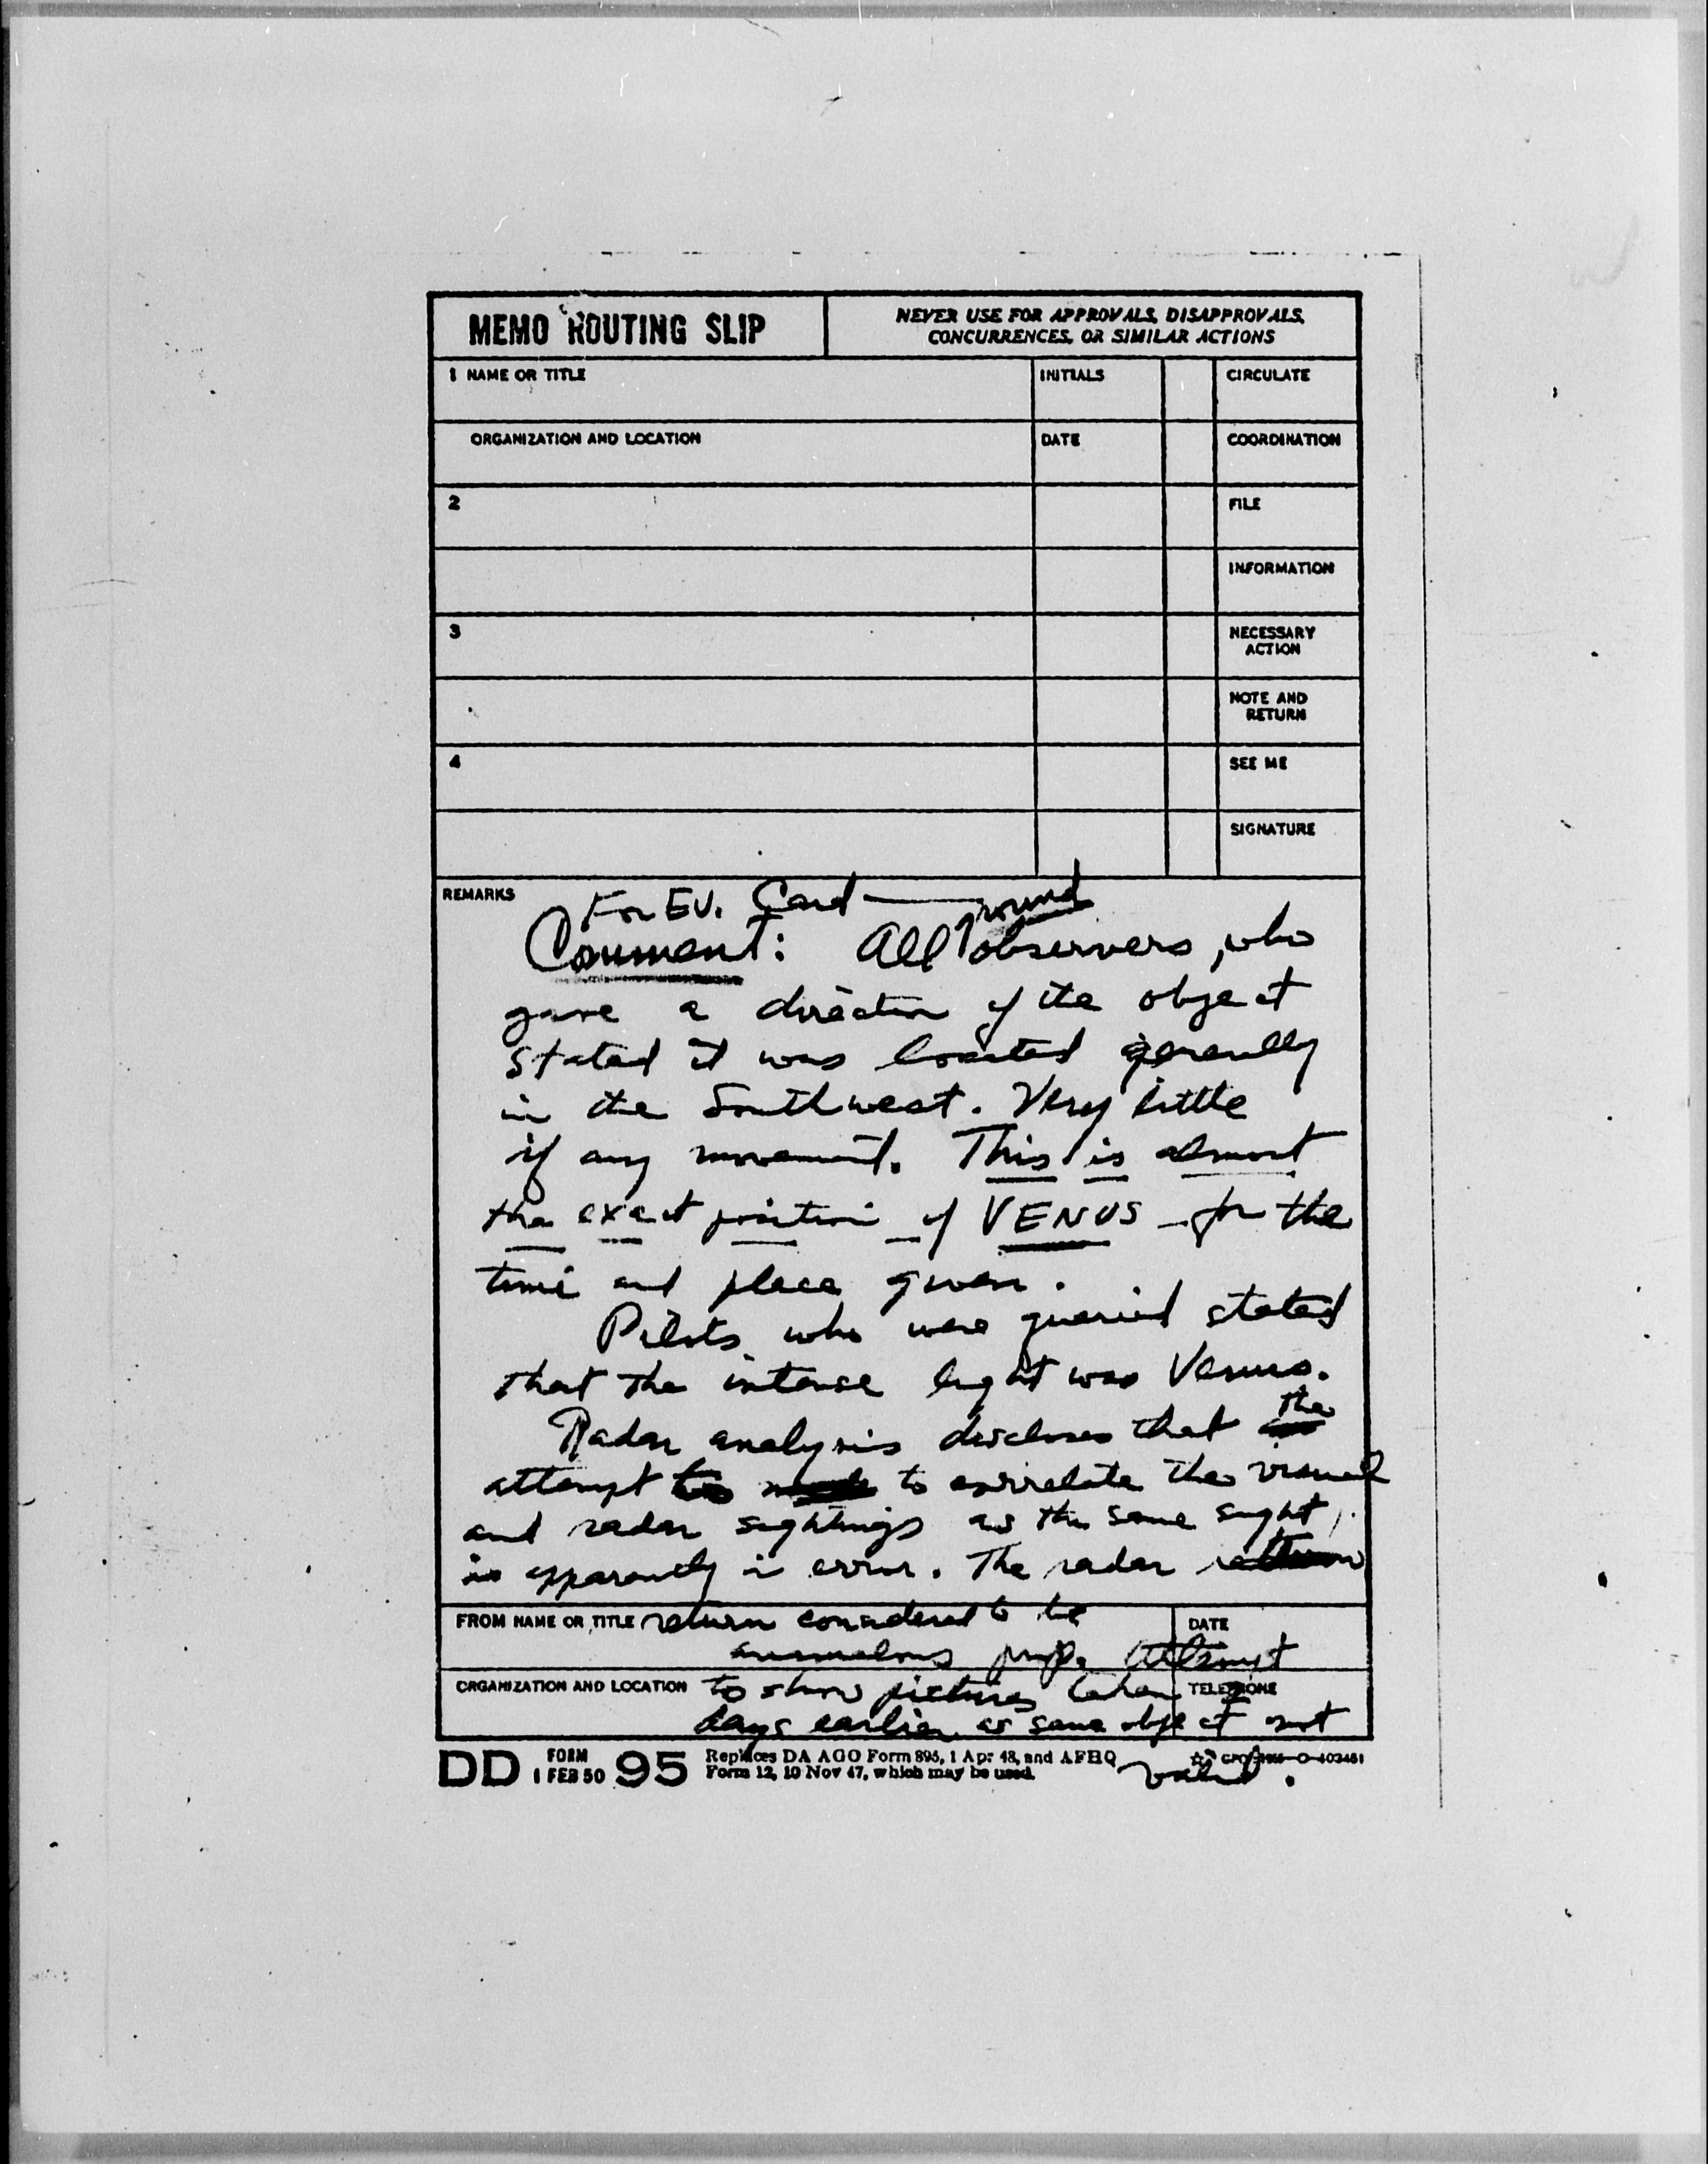 MEMO ROUTING SLIP
NEVER USE FOR APPROVALS, DISAPPROVALS,
CONCURRENCES, OR SIMILAR ACTIONS
1 NAME OR TITLE
INITIALS
CIRCULATE
ORGANIZATION AND LOCATION
DATE
COORDINATION
2
FILE
INFORMATION
3
NECESSARY
ACTION
NOTE AND
RETURN
4
SEE ME
SIGNATURE
REMARKS
For EV. Card
Comment: All ground observers, who
gave a direction of the object
stated it was located generally
in the Southwest. Very little
if any movement. This is almost
the exact position of VENUS for the
time and place given.
Pilots who were queried stated
that the intense light was Venus.
Radar analysis discloses that the
attempt to correlate the visual
and radar sightings as the same sight,
is apparently in error. The radar
FROM NAME OR TITLE return considered to be
DATE
anomalous prop. Attempt
ORGANIZATION AND LOCATION to show pictures taken 2
TELEPHONE
days earlier as same object not
valid.
DD FORM 1 FEB 50 95
Replaces DA AGO Form 895, 1 Apr 48, and AFHQ
Form 12, 10 Nov 47, which may be used.